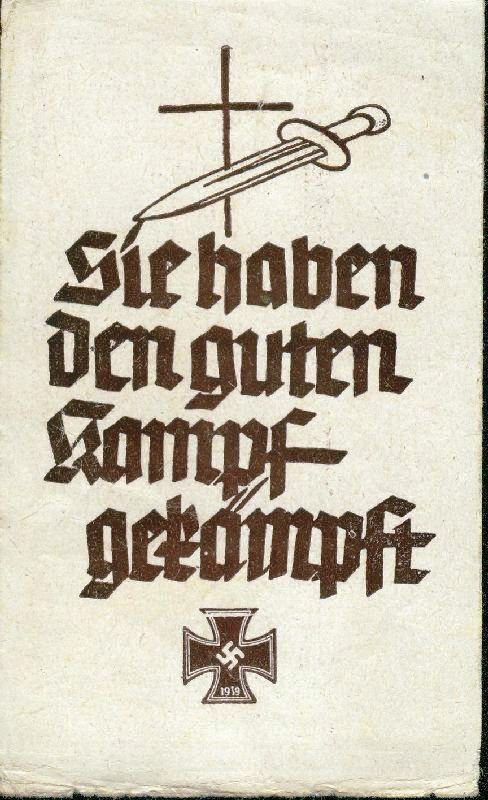 Sie haben
den guten
Kampf
gekämpft
1939